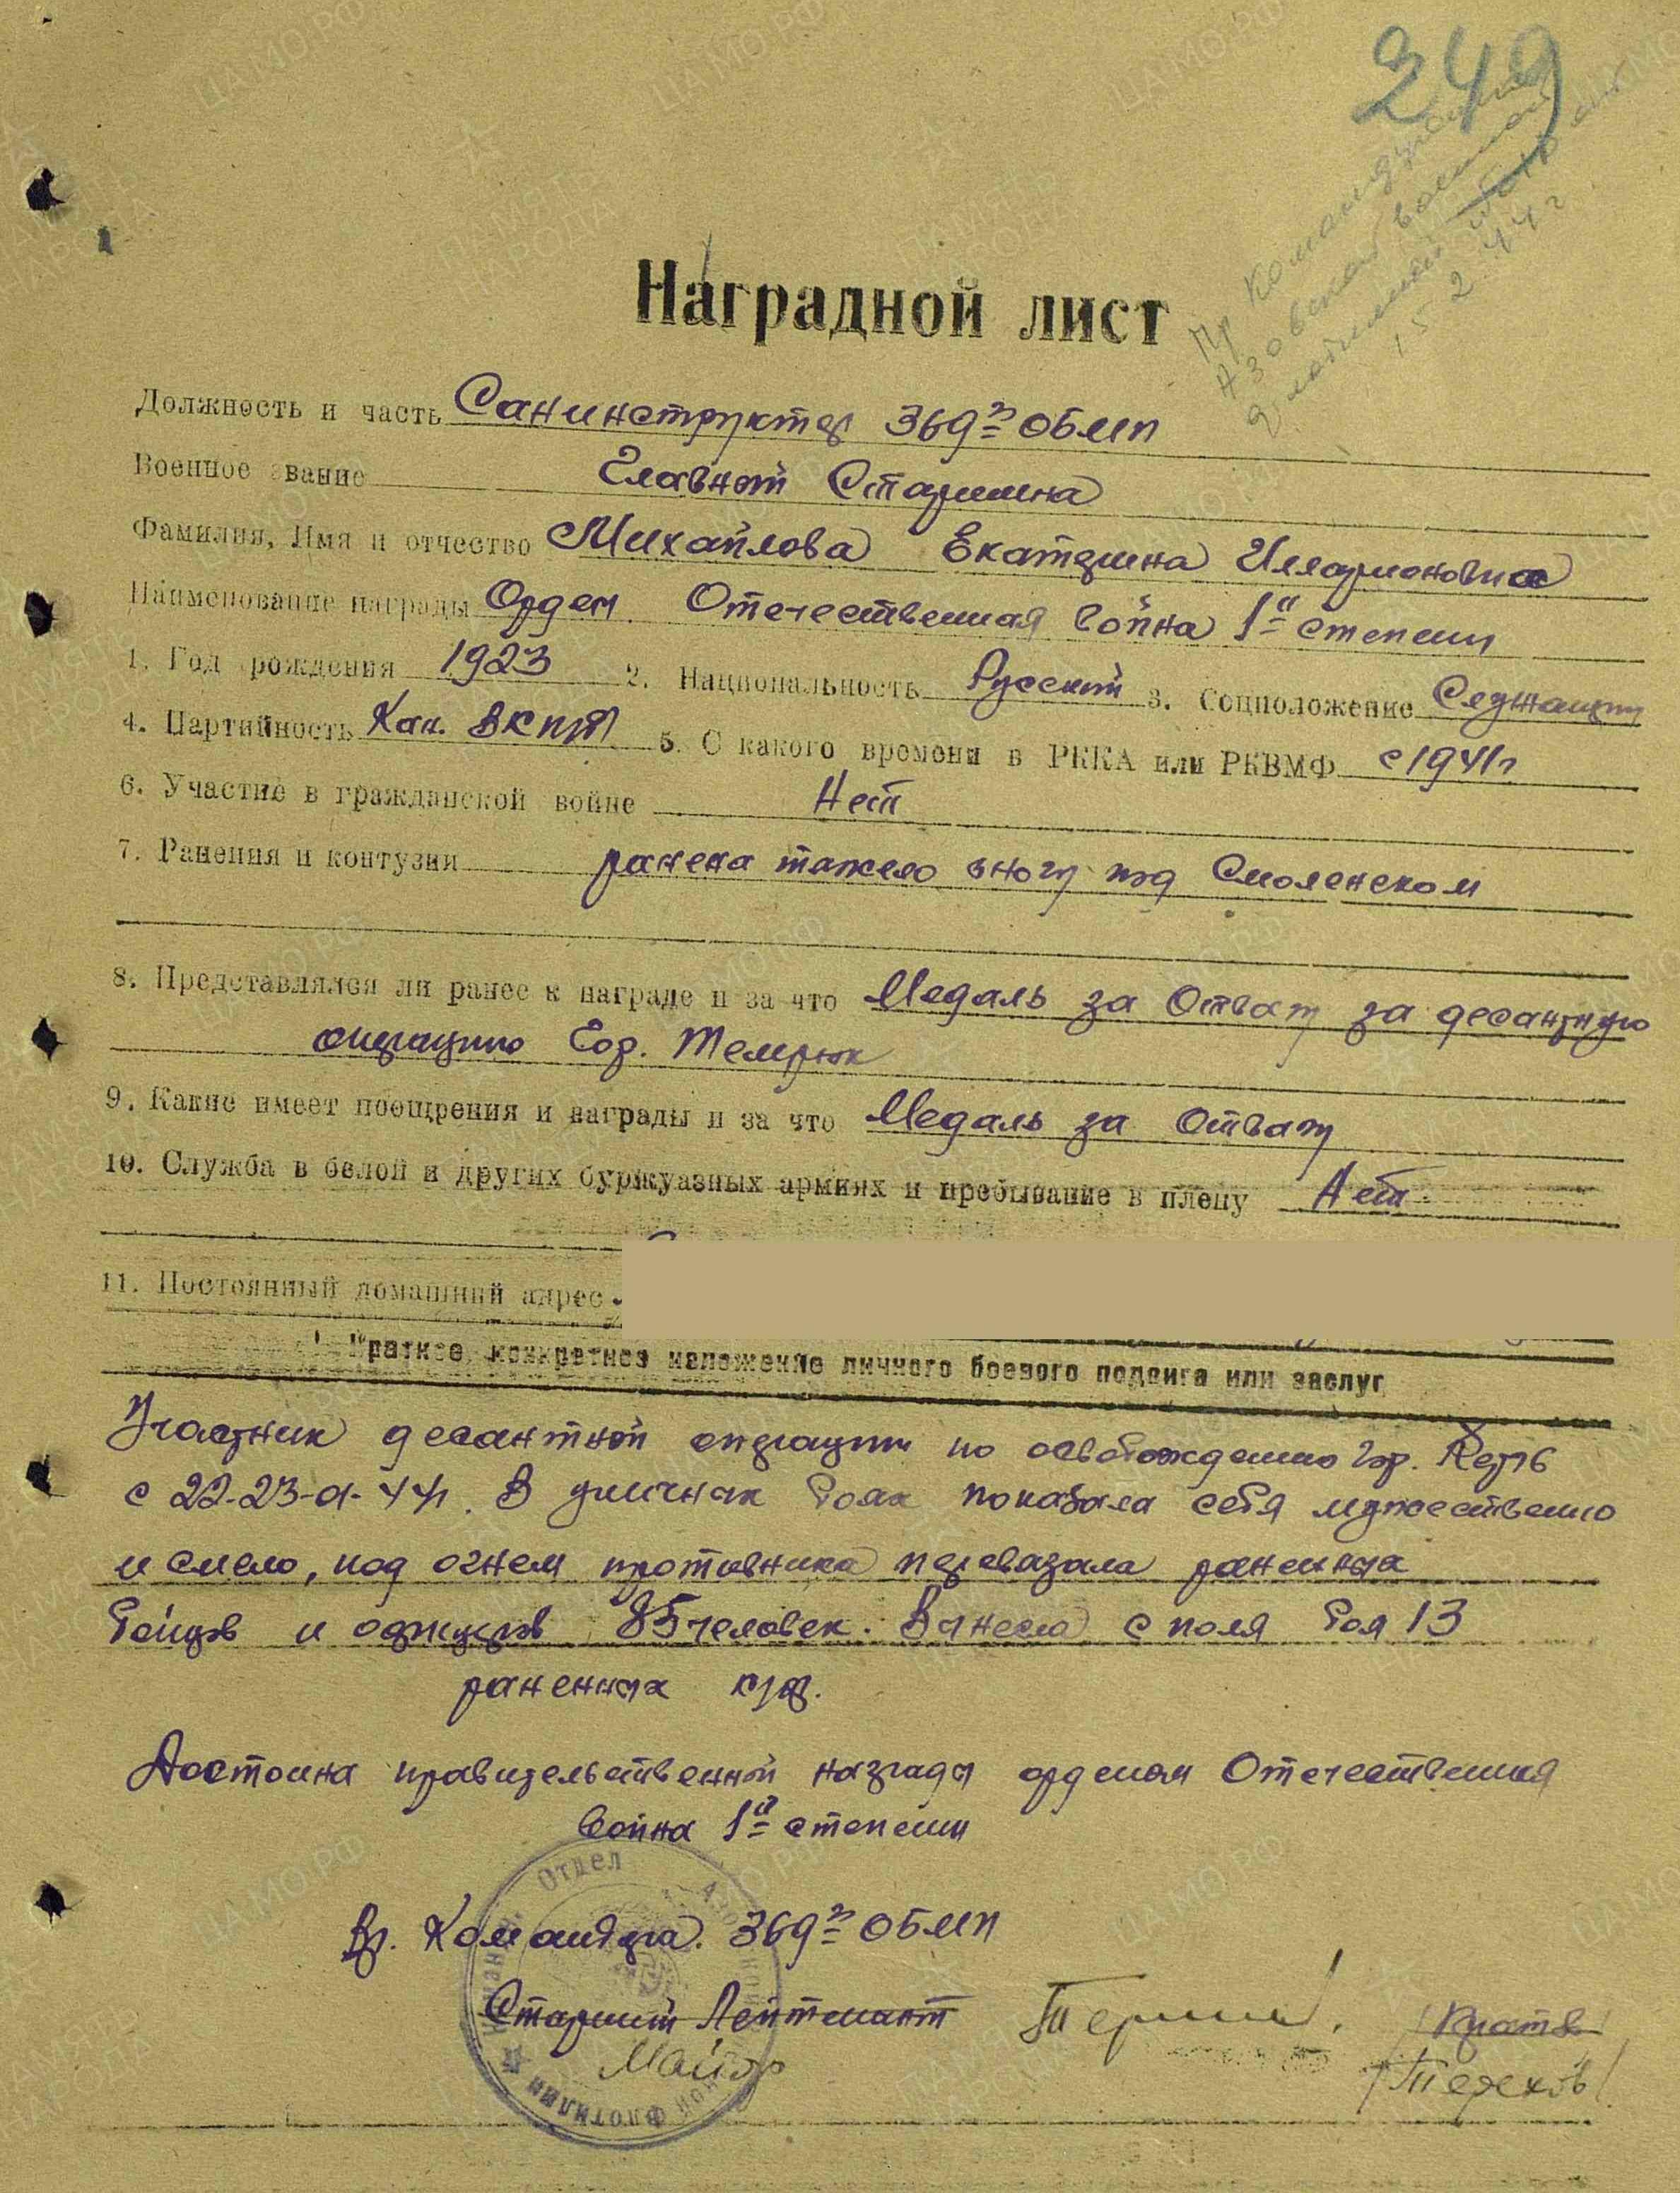 249
Пр Командующему
Азовской военной
флотилией
15 2 44 г
Наградной лист
Должность и часть Санинструктор 369го ОБМП
Военное звание Главной Старшина
Фамилия, Имя и отчество Михайлова Екатерина Илларионовна
Наименование награды Орден Отечественная война 1й степени
1. Год рождения 1923 2. Национальность Русской 3. Соцположение Служащий
4. Партийность Кан. ВКП(б) 5. С какого времени в РККА или РКВМФ с 1941г.
6. Участие в гражданской войне Нет
7. Ранения и контузии ранена тяжело в ногу под Смоленском
8. Представлялся ли ранее к награде и за что Медаль за Отвагу за десантную
операцию Гор. Темрюк
9. Какие имеет поощрения и награды и за что Медаль за Отвагу
10. Служба в белой и других буржуазных армиях и пребывание в плену Нет.
11. Постоянный домашний адрес
Краткое, конкретное изложение личного боевого подвига или заслуг
Участник десантной операции по освобождению гор. Керчь
с 22-23-01-44г. В уличных боях показала себя мужественно
и смело, под огнем противника перевязала раненных
бойцов и офицеров 85 человек. Вынесла с поля боя 13
раненных
Достойна правительственной награды орденом Отечественная
Война 1й степени
Вр. Командира 369го ОБМП
Старший Лейтенант
Майор
/Терехов/
Отдел Азовской Флотилии